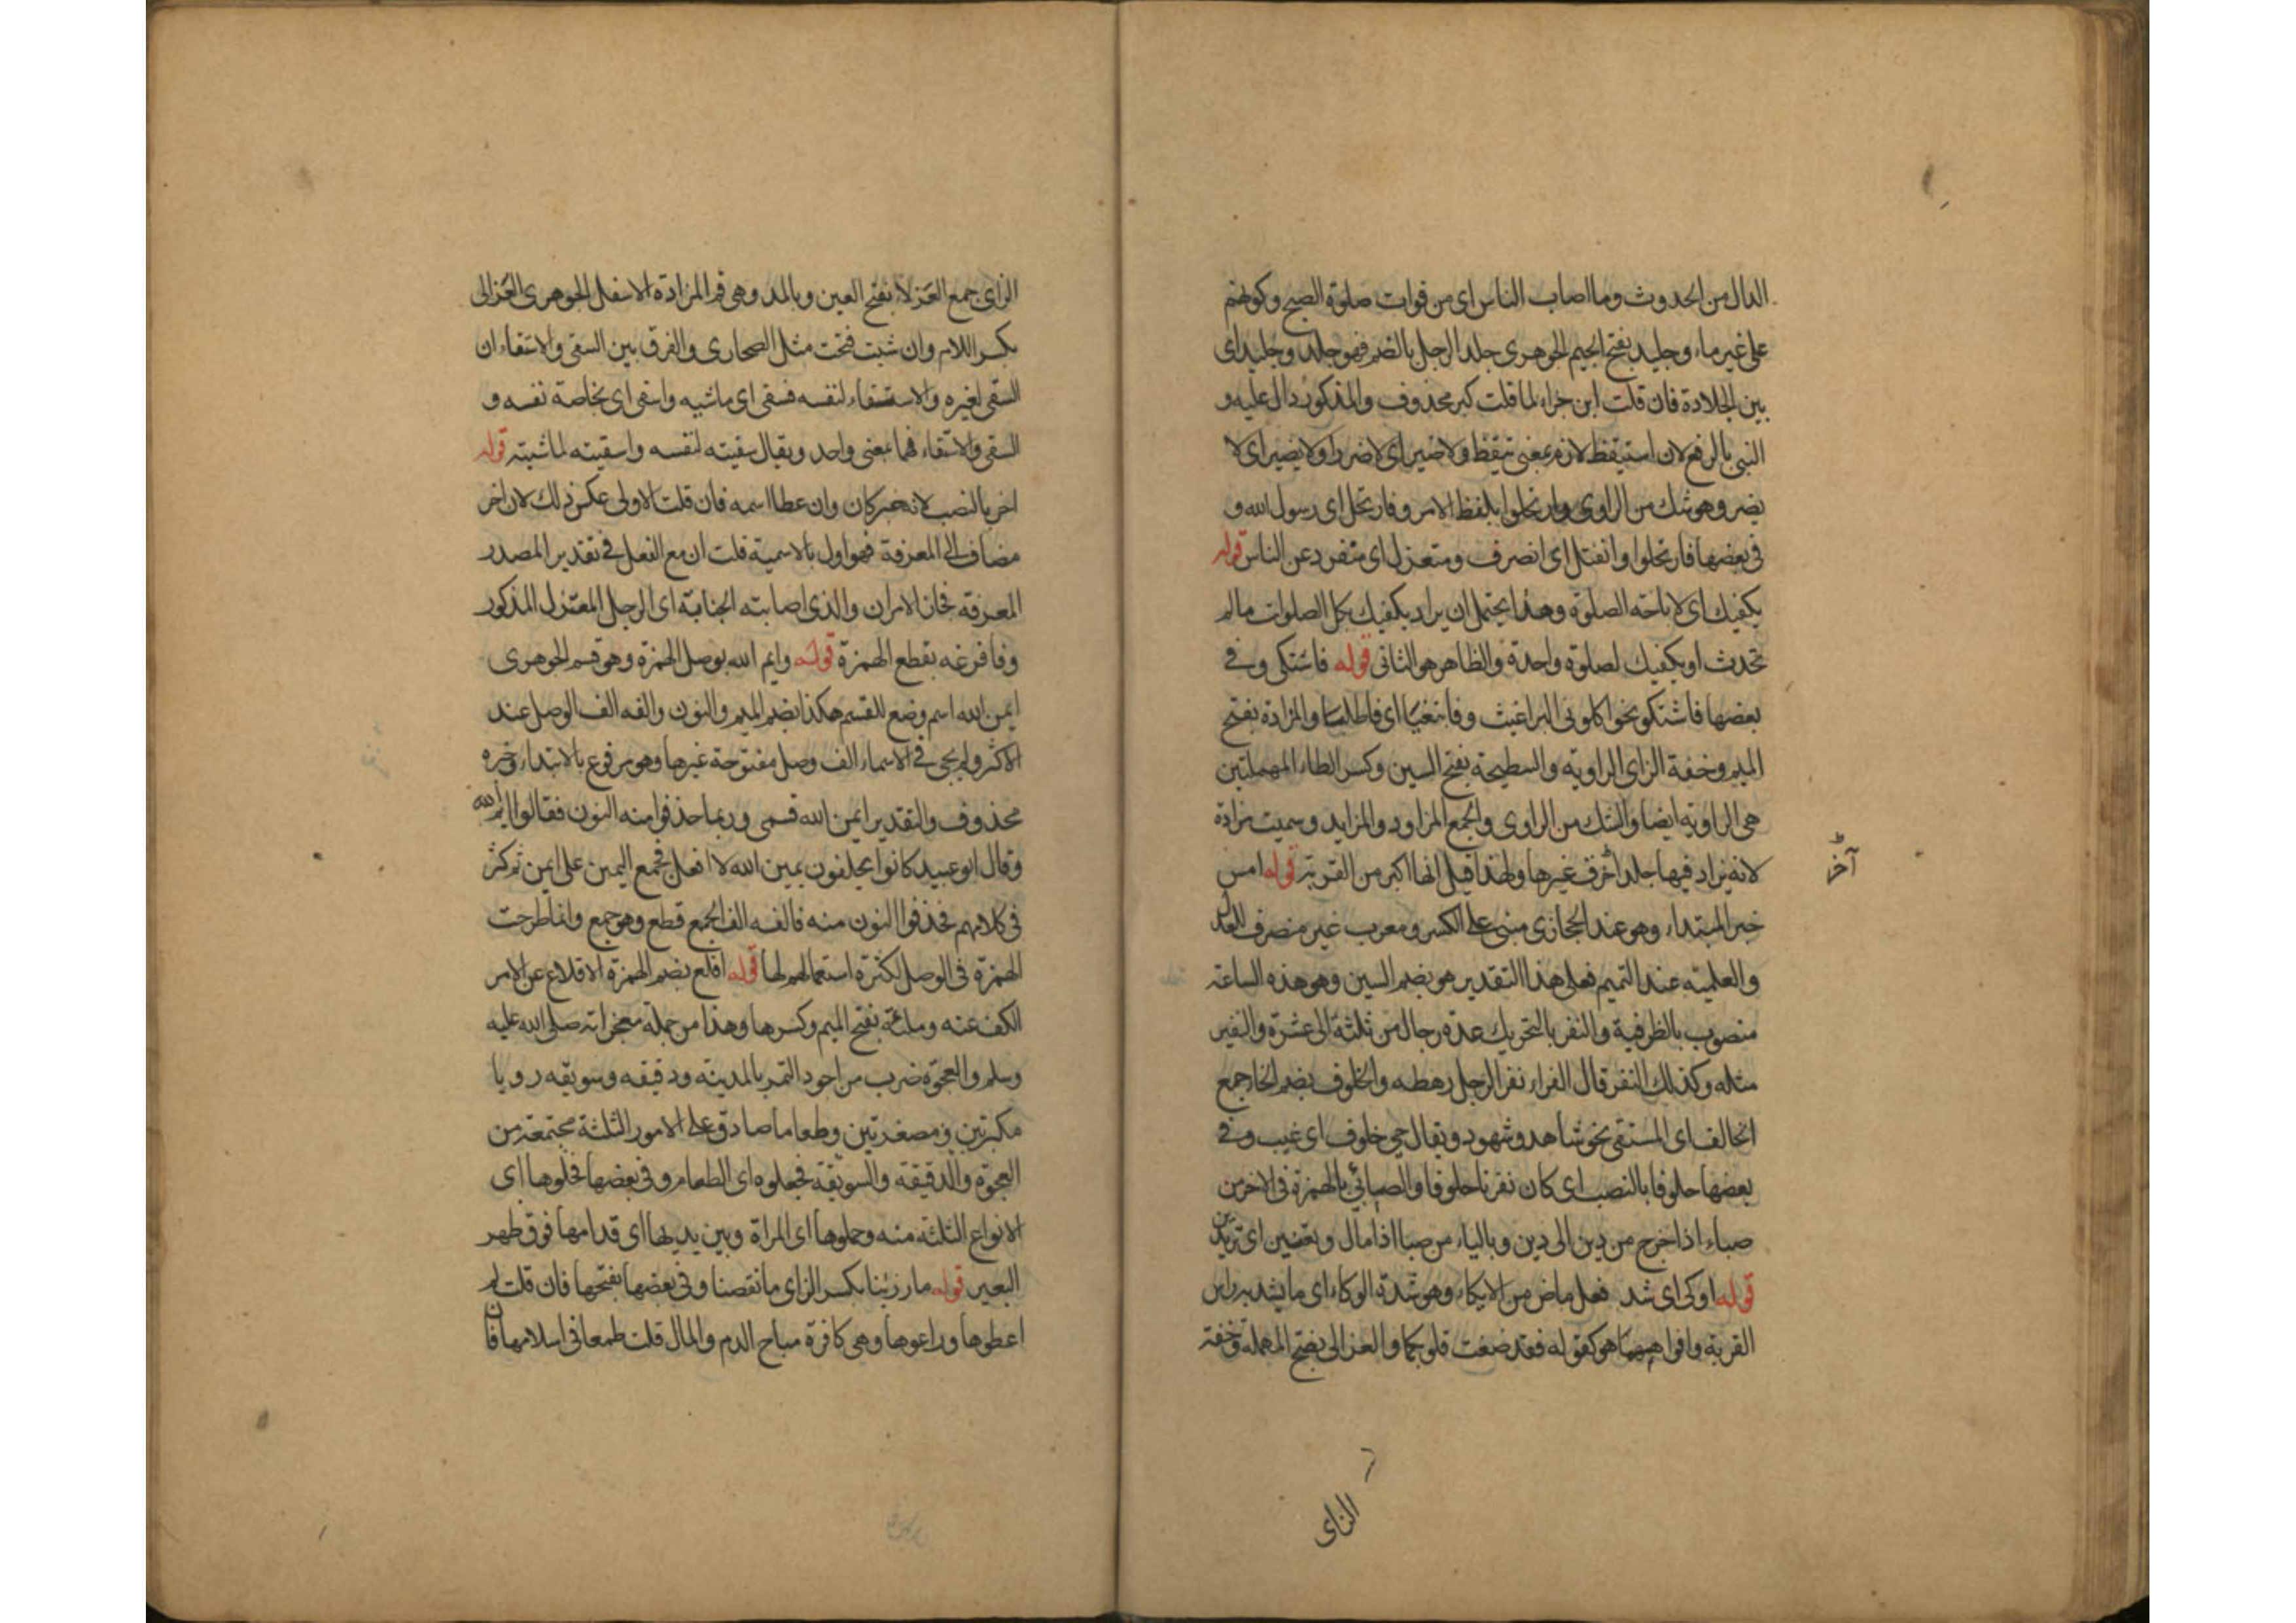 الدال من الحدوث وما اصاب الناس اى من فوات صلوة الصبح وكونهم
على غير ماء وجليد بفتح الجيم الجوهرى جلد الرجل بالضم فهو جلد وجليد اى
بين الجلادة فان قلت اين جزاء لما قلت كبر محذوف والمذكور دال عليه و
النبى بالرفع لان استيقظ لازم بمعنى تيقظ ولا ضير اى لا ضرر اولا يضير اى لا
يضر وهو شك من الراوى وارتحلوا بلفظ الامر وفارتحل اى رسول الله و
فى بعضها فارتحلوا وانفتل اى انصرف ومتعزل اى منفرد عن الناس قوله
يكفيك اى لاباحة الصلوة وهذا يحتمل ان يراد يكفيك بكل الصلوات مالم
تحدث او يكفيك لصلوة واحدة والظاهر هو الثانى قوله فاشتكى وفى
بعضها فاشتكو نحو اكلونى البراغيث وفابتغيا اى فاطلبا والمزادة بفتح
الميم وخفة الزاى الراوية والسطيحة بفتح السين وكسر الطاء المهملتين
هى الزاوية ايضا والشك من الراوى والجمع المزاود والمزايد وسميت مزادة
لانه يزاد فيها جلد اخر ف غيرها ولهذا قيل انها اكبر من القربة قوله امس
آخر
خبر المبتداء وهو عند الحجازى مبنى على الكسر ومعرب غير منصرف للعدل
والعلمية عند التميم فعلى هذا التقدير هو بضم السين وهو هذه الساعة
منصوب بالظرفية والنفر بالتحريك عدة رجال من ثلثة الى عشرة والنفير
مثله وكذلك النفر قال الفراء نفر الرجل رهطه والخلوف بضم الخا جمع
الخالف اى المستقى نحو شاهد وشهود ويقال حى خلوف اى غيب وفى
بعضها خلوفا بالنصب اى كان نفرنا خلوفا والصابئ بالهمزة فى الاخر من
صباء اذا خرج من دين الى دين وبالياء من صبا اذا مال وتعنين اى تريدين
قوله اوكى اى شد فعل ماض من الايكاء وهو شدة الوكاء اى ما يشد به راس
القربة وافواهيهما هو كقوله فقد صغت قلوبكما والعزالى بفتح المهملة وخفة
الزاى
الزاى جمع العزلاء بفتح العين وبالمد وهى فم المزادة الاسفل الجوهرى العزالى
بكسر اللام وان شئت فتحت مثل الصحارى والفرق بين السقى والاستقاء ان
السقى لغيره والاستسقاء لنفسه فسقى اى ماشيه واسقى اى بخاصة نفسه و
السقى والاسقاء فهما بمعنى واحد ويقال سقيته لنفسه واسقيته لماشيته قوله
اخر بالنصب لانه خبر كان وان عطا اسمه فان قلت الاولى عكس ذلك لان اخر
مضاف الى المعرفة فهو اول بالاسمية قلت ان مع الفعل فى تقدير المصدر
المعرفة فجاز الامران والذى اصابته الجنابة اى الرجل المعتزل المذكور
وفافرغه بقطع الهمزة قوله وايم الله بوصل الهمزة وهو قسم الجوهرى
ايمن الله اسم وضع للقسم هكذا بضم الميم والنون والفه الف الوصل عند
الاكثر ولم يجى فى الاسماء الف وصل مفتوحة غيرها وهو مرفوع بالابتداء وخبره
محذوف والتقدير ايمن الله قسمى وربما حذفوا منه النون فقالوا ايم الله
وقال ابو عبيد كانوا يحلفون بيمين الله لا افعل فجمع اليمين على ايمن ثم كثر
فى كلامهم فحذفوا النون منه فالفه الف الجمع قطع وهو جمع وانما طرحت
الهمزة فى الوصل لكثرة استعمالهم لها قوله اقلع بضم الهمزة الاقلاع عن الامر
الكف عنه وملئة بفتح الميم وكسرها وهذا من جملة معجزاته صلى الله عليه
وسلم والعجوة ضرب من اجود التمر بالمدينة ودقيقه وسويقه رويا
مكبرتين ومصغرتين وطعاما صادق على الامور الثلثة مجتمعة من
العجوة والدقيقة والسويقة فجعلوه اى الطعام وفى بعضها فجعلوها اى
الانواع الثلثة منه وحملوها اى المراة وبين يديها اى قدامها فوق ظهر
البعير قوله ما رزئنا بكسر الزاى ما نقصنا وفى بعضها بفتحها فان قلت لم
اعطوها وراعوها وهى كافرة مباح الدم والمال قلت طمعا فى اسلامها فان